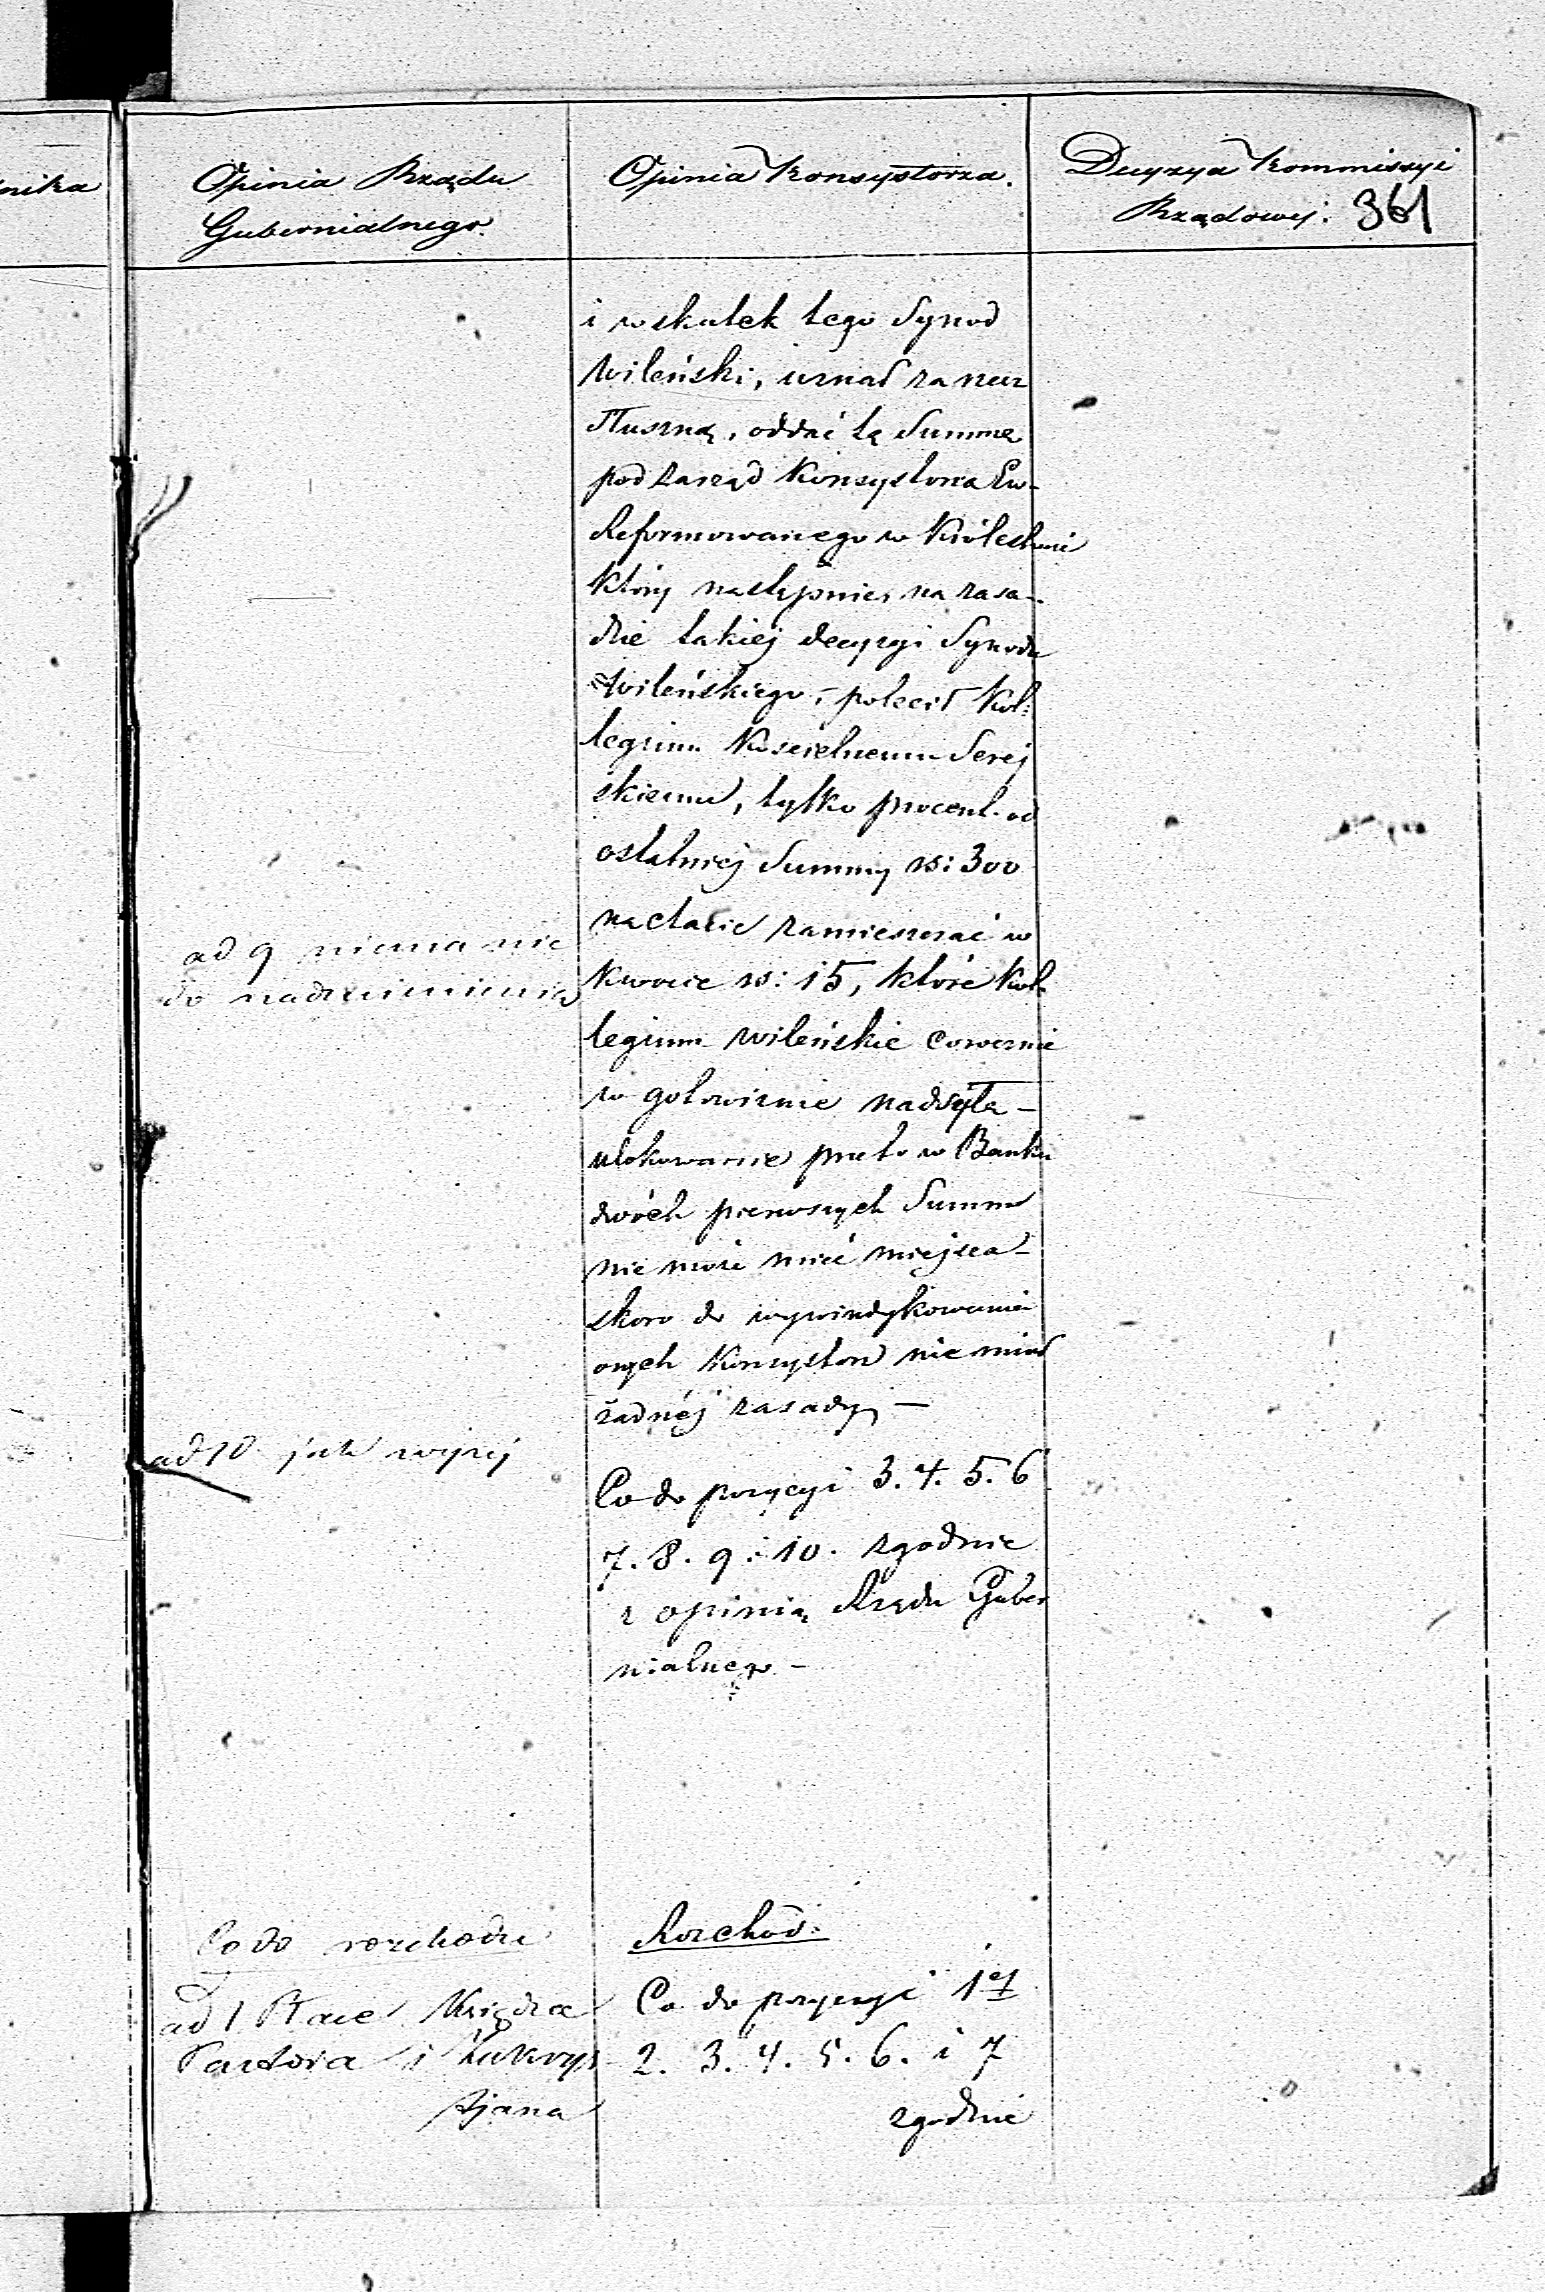 nika
Opinia Rządu
Gubernialnego.
Opinia Konsystorza.
Decyzya Kommissyi
Rządowej. 361
i wskutek tego Synod
Wileński, uznał za rzecz
słuszną, oddać tę Summę
pod zarząd Konsystorza Ew-
Reformowanego w Królestwie
który następnie, na zasa-
dzie takiej decyzyi Synodu
Wileńskiego, polecił Kol-
legium Kościelnemu Serej
skiemu, tylko procent od
ostatniej Summy rs: 300
na etacie zamieszczać w
kwocie rs: 15, które Kol-
legium Wileńskie corocznie
w gotowiznie nadsyła –
ulokowanie przeto w Banku
dwóch pierwszych Summ
nie może mieć miejsca –
skoro do wywindykowania
onych Konsystorz nie miał
żadnéj zasady, –
Co do pozycyi 3. 4. 5. 6
7. 8. 9. i 10. zgodnie
z opinią Rządu Guber
nialnego –
ad 9 niema nic
do nadmienienia
ad 10 jak wyżej
Co do rozchodu
ad 1 Płace Księdza
Pastora i Zakrys
tjana
Rozchód:
Co do pozycyi 1ej
2. 3. 4. 5. 6. i 7
zgodnie